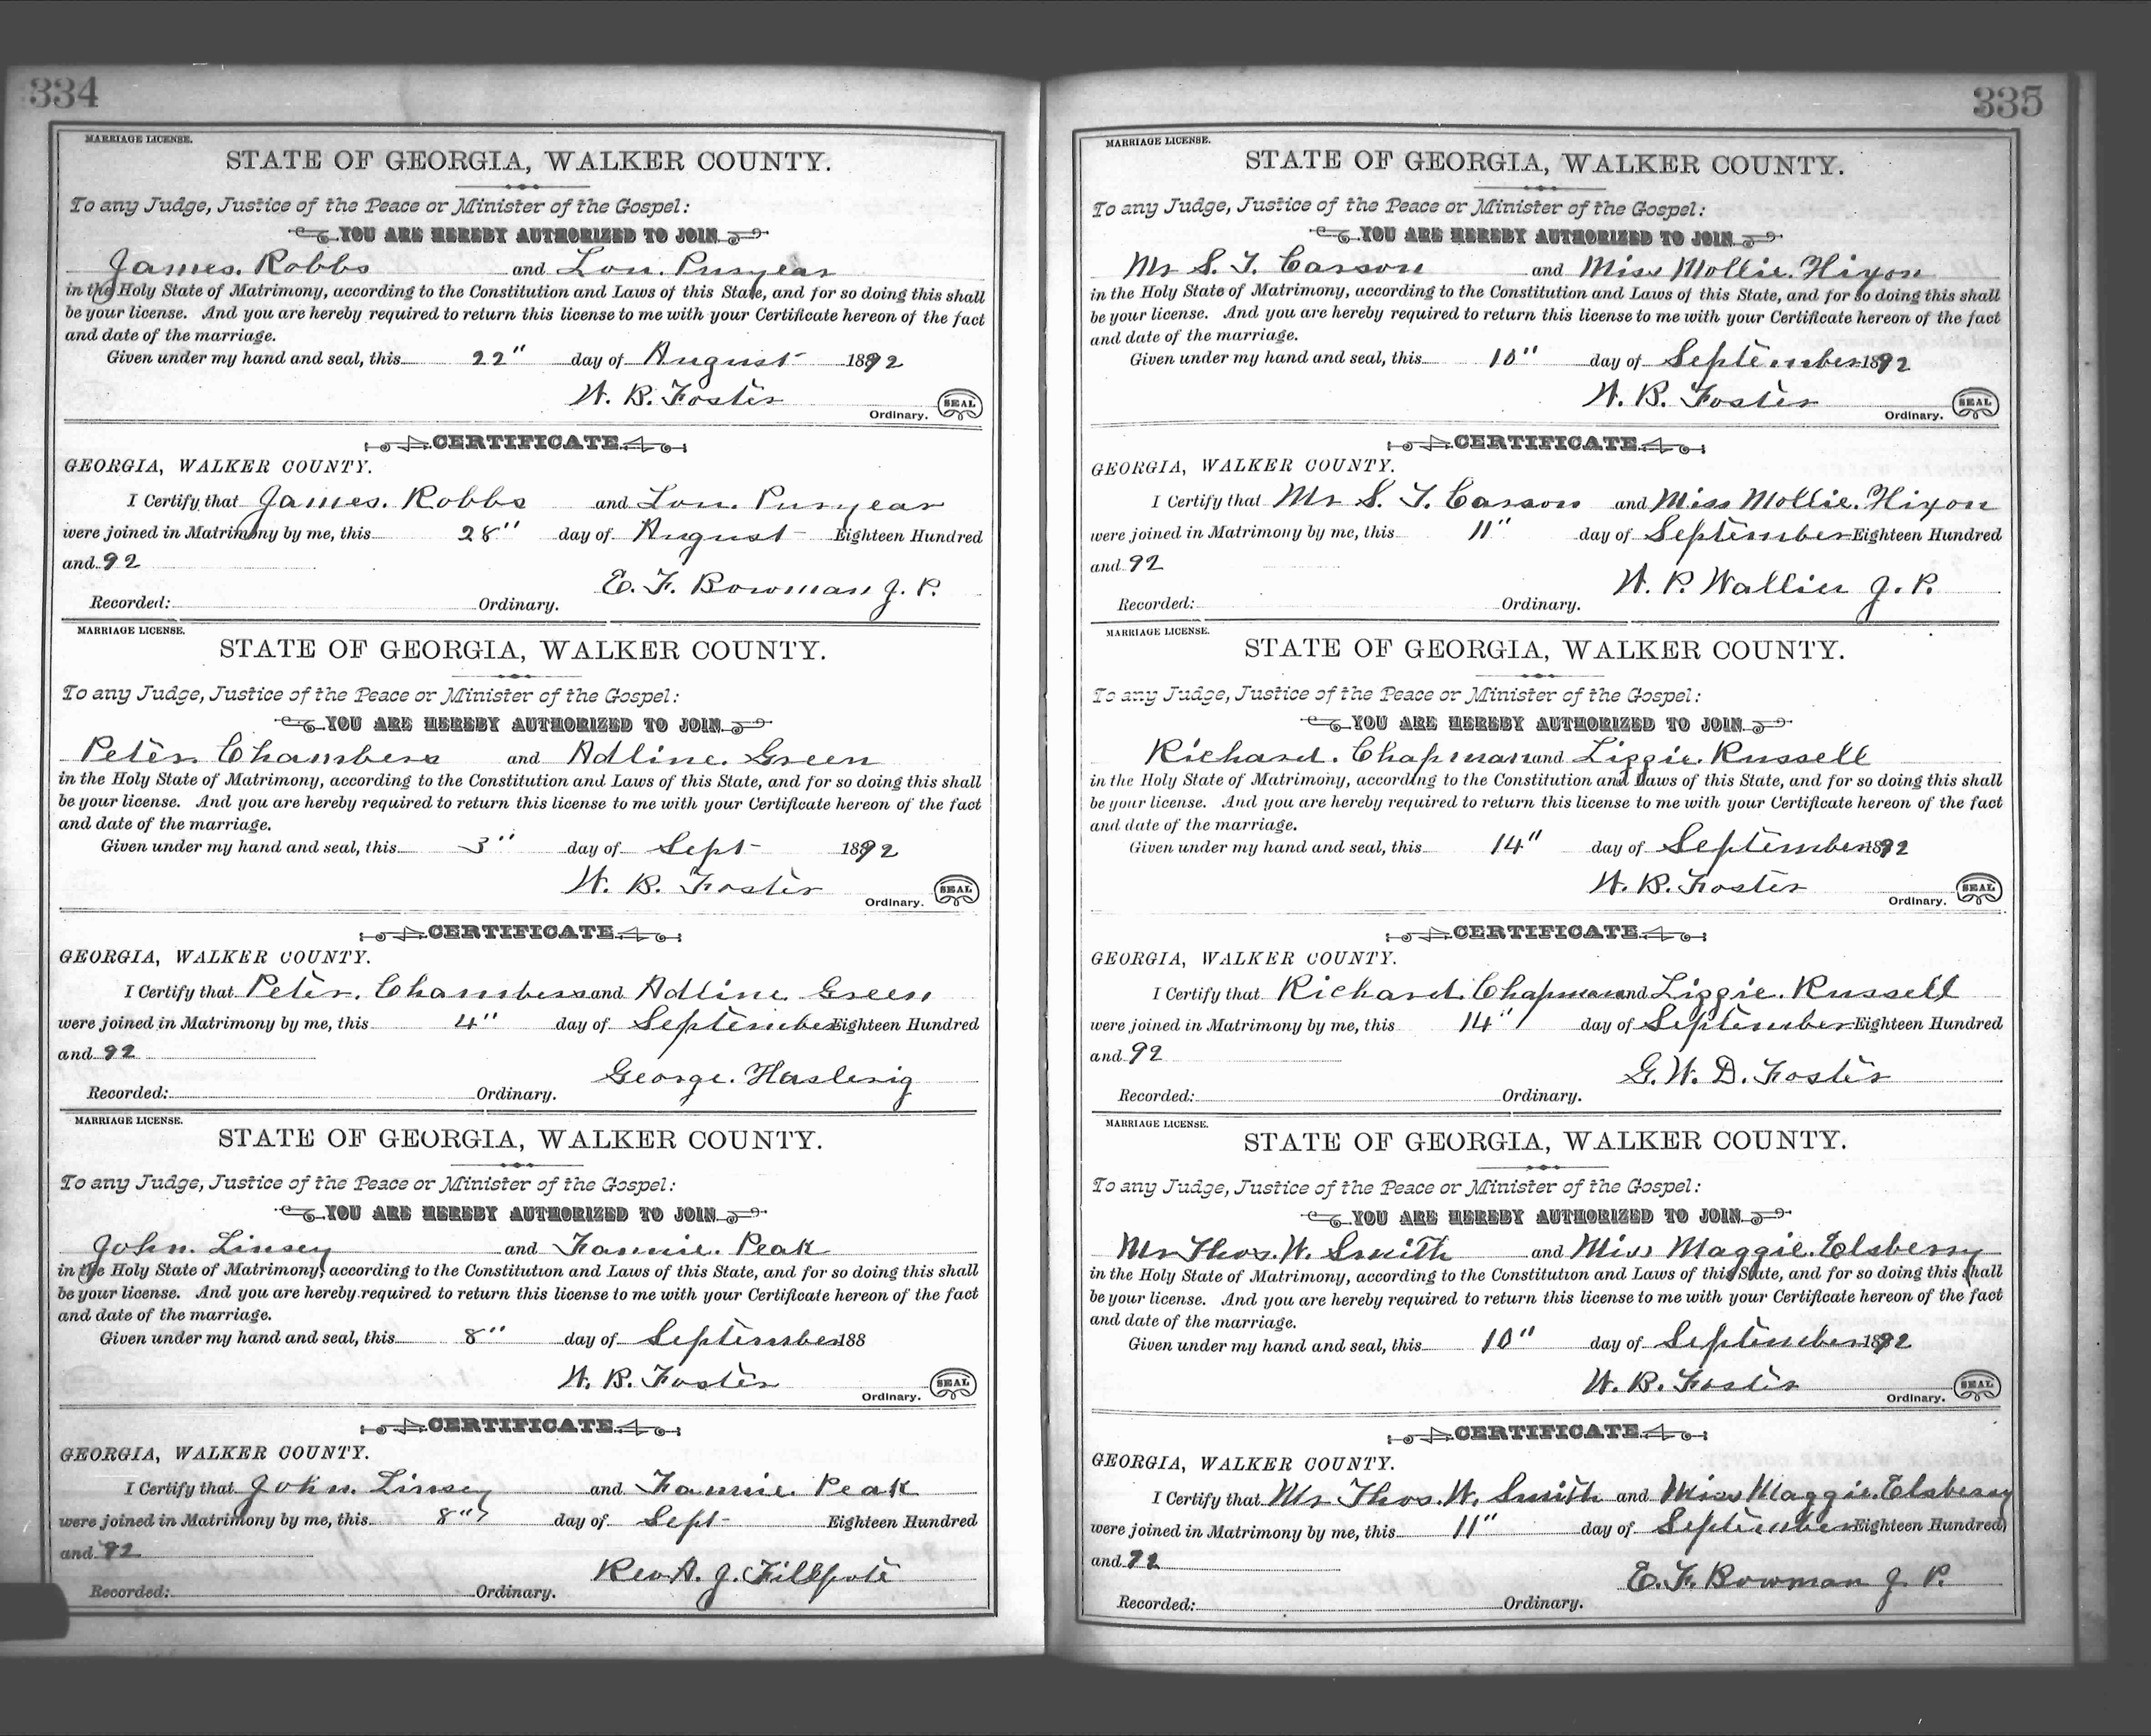 334
MARRIAGE LICENSE.
STATE OF GEORGIA, WALKER COUNTY.
To any Judge, Justice of the Peace or Minister of the Gospel:
YOU ARE HEREBY AUTHORIZED TO JOIN
James. Robbs and Lou. Puryear
in the Holy State of Matrimony, according to the Constitution and Laws of this State, and for so doing this shall
be your license. And you are hereby required to return this license to me with your Certificate hereon of the fact
and date of the marriage.
Given under my hand and seal, this 22" day of August 1892
W. B. Foster
Ordinary. SEAL
CERTIFICATE
GEORGIA, WALKER COUNTY.
I Certify that James. Robbs and Lou. Puryear
were joined in Matrimony by me, this 28" day of August Eighteen Hundred
and 92
E. F. Bowman J. P.
Recorded: Ordinary.
MARRIAGE LICENSE.
STATE OF GEORGIA, WALKER COUNTY.
To any Judge, Justice of the Peace or Minister of the Gospel:
YOU ARE HEREBY AUTHORIZED TO JOIN
Peter Chambers and Adline. Green
in the Holy State of Matrimony, according to the Constitution and Laws of this State, and for so doing this shall
be your license. And you are hereby required to return this license to me with your Certificate hereon of the fact
and date of the marriage.
Given under my hand and seal, this 3" day of Sept 1892
W. B. Foster
Ordinary. SEAL
CERTIFICATE
GEORGIA, WALKER COUNTY.
I Certify that Peter. Chambers and Adline Green
were joined in Matrimony by me, this 4" day of September Eighteen Hundred
and 92
George. Haslerig
Recorded: Ordinary.
MARRIAGE LICENSE.
STATE OF GEORGIA, WALKER COUNTY.
To any Judge, Justice of the Peace or Minister of the Gospel:
YOU ARE HEREBY AUTHORIZED TO JOIN
John. Linsey and Fannie. Peak
in the Holy State of Matrimony, according to the Constitution and Laws of this State, and for so doing this shall
be your license. And you are hereby required to return this license to me with your Certificate hereon of the fact
and date of the marriage.
Given under my hand and seal, this 8" day of September 188
W. B. Foster
Ordinary. SEAL
CERTIFICATE
GEORGIA, WALKER COUNTY.
I Certify that John. Linsey and Fannie. Peak
were joined in Matrimony by me, this 8" day of Sept Eighteen Hundred
and 92
Rev A. J. Fillpote
Recorded: Ordinary.
335
MARRIAGE LICENSE.
STATE OF GEORGIA, WALKER COUNTY.
To any Judge, Justice of the Peace or Minister of the Gospel:
YOU ARE HEREBY AUTHORIZED TO JOIN
Mr S. T. Carson and Miss Mollie. Hixon
in the Holy State of Matrimony, according to the Constitution and Laws of this State, and for so doing this shall
be your license. And you are hereby required to return this license to me with your Certificate hereon of the fact
and date of the marriage.
Given under my hand and seal, this 10" day of September 1892
W. B. Foster
Ordinary. SEAL
CERTIFICATE
GEORGIA, WALKER COUNTY.
I Certify that Mr S. T. Carson and Miss Mollie. Hixon
were joined in Matrimony by me, this 11" day of September Eighteen Hundred
and 92
W. P. J. P.
Recorded: Ordinary.
MARRIAGE LICENSE.
STATE OF GEORGIA, WALKER COUNTY.
To any Judge, Justice of the Peace or Minister of the Gospel:
YOU ARE HEREBY AUTHORIZED TO JOIN
Richard. Chapman and Lizzie. Russell
in the Holy State of Matrimony, according to the Constitution and Laws of this State, and for so doing this shall
be your license. And you are hereby required to return this license to me with your Certificate hereon of the fact
and date of the marriage.
Given under my hand and seal, this 14" day of September 1892
W. B. Foster
Ordinary. SEAL
CERTIFICATE
GEORGIA, WALKER COUNTY.
I Certify that Richard. Chapman and Lizzie. Russell
were joined in Matrimony by me, this 14" day of September Eighteen Hundred
and 92
G. W. D. Foster
Recorded: Ordinary.
MARRIAGE LICENSE.
STATE OF GEORGIA, WALKER COUNTY.
To any Judge, Justice of the Peace or Minister of the Gospel:
YOU ARE HEREBY AUTHORIZED TO JOIN
Mr Thos. W. Smith and Miss Maggie. Elsberry
in the Holy State of Matrimony, according to the Constitution and Laws of this State, and for so doing this shall
be your license. And you are hereby required to return this license to me with your Certificate hereon of the fact
and date of the marriage.
Given under my hand and seal, this 10" day of September 1892
W. B. Foster
Ordinary. SEAL
CERTIFICATE
GEORGIA, WALKER COUNTY.
I Certify that Mr Thos. W. Smith and Miss Maggie. Elsberry
were joined in Matrimony by me, this 11" day of September Eighteen Hundred
and 92
E. F. Bowman J. P.
Recorded: Ordinary.